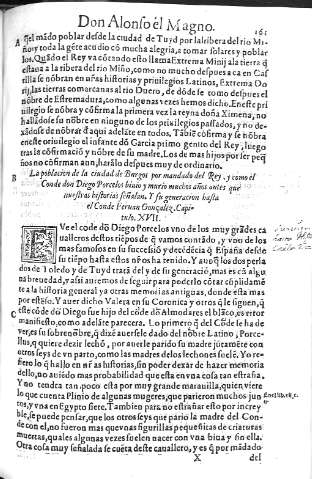 Don Alonso el Magno. 161
A
q̃l mãdo poblar desde la ciudad de Tuyd por la ribera del rio Mi-
ño y toda la gẽte acudio cõ mucha alegria, a tomar solares y poblar
los. Quãdo el Rey va cõtando esto llama Extrema Minij a la tierra q̃
estaua a la ribera del rio Miño, como no mucho despues aca en Cas
tilla se nõbran en ñras historias y priuilegios Latinos, Extrema Do
rij, las tierras comarcanas al rio Duero, de dõde se como despues el
nõbre de Estremadura, como algunas vezes hemos dicho. En este pri
uilegio se nõbra y cõfirma la primera vez la reyna doña Ximena, no
hallãdose su nõbre en ninguno de los priuilegios passados, y no de-
xãdose de nõbrar d̃ aqui adelãte en todos. Tãbiẽ cõfirma y se nõbra
en este priuilegio el infante dõ Garcia primo genito del Rey, luego
tras la cõfirmaciõ y nõbre de su madre. Los de mas hijos por ser peq̃
ños no cõfirman aun, harãlo despues muy de ordinario.
B
La poblacion de la ciudad de Burgos por mandado del Rey. y como el
Conde don Diego Porcelos biuio y murio muchos años antes que
nuestras historias señalan. Y su generacion hasta
el Conde Fernan Gonzalez. Capi-
tulo. XVII.
FVe el code dõ Diego Porcelos vno de los muy grãdes ca
ualleros destos tiẽpos de q̃ vamos contãdo, y vno de los
mas famosos en su successiõ y decẽdẽcia q̃ España desde
su tiẽpo hasta estos ñros ha tenido. Y aunq̃ los dos perla
dos de Toledo y de Tuyd tratã del y de su generaciõ, mas es cõ algu
na breuedad, y assi auremos de seguir para poderlo cõtar cũplidamẽ
te a la historia general y a otras memorias antiguas, donde esta mas
por estẽso. Y auer dicho Valera en su Coronica y otros q̃ le siguen, q̃
C
este cõde dõ Diego fue hijo del cõde dõ Almodares el blãco, es error
manifiesto, como adelãte parecera. Lo primero q̃ del Cõde se ha de
ver, es su sobrenõbre, q̃ dizẽ auerle dado del nõbre Latino, Porcel-
lus, q̃ quiere dezir lechõ, por auerle parido su madre jũtamẽte con
otros seys de vn parto, como las madres de los lechones suelẽ. Yo re-
fiero lo q̃ hallo en ñras historias, sin poder dexar de hazer memoria
dello, no auiẽdo mas probabilidad que esta en vna cosa tan estraña.
Y no tendra tan poco esta por muy grande marauilla, quien viere
lo que cuenta Plinio de algunas mugeres, que parieron muchos jun
tos, y vna en Egipto siete. Tambien para no estrañar esto por increy
ble, se puede pensar, que los otros seys que pario la madre del Con-
de con el, no fueron mas que vnas figurillas pequeñicas de criaturas
muertas, quales algunas vezes suelen nacer con vna biua y sin ella.
Otra cosa muy señalada se cuẽta deste cauallero, y es q̃ por mãdado
X del